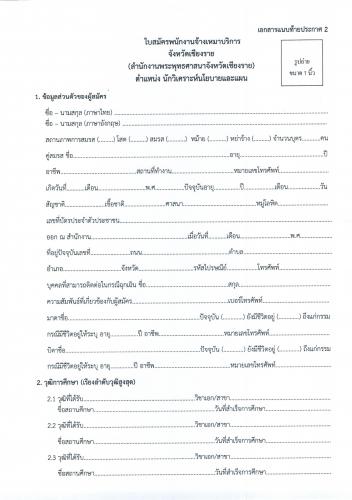 เอกสารแนบท้ายประกาศ 2
ใบสมัครพนักงานจ้างเหมาบริการ
จังหวัดเชียงราย
(สำนักงานพระพุทธศาสนาจังหวัดเชียงราย)
ตำแหน่ง นักวิเคราะห์นโยบายและแผน
รูปถ่าย
ขนาด 1 นิ้ว
1. ข้อมูลส่วนตัวของผู้สมัคร
ชื่อ – นามสกุล (ภาษาไทย)
ชื่อ – นามสกุล (ภาษาอังกฤษ)
สถานภาพการสมรส (.........) โสด (.........) สมรส (.........) หม้าย (.........) หย่าร้าง (.........) จำนวนบุตร..........คน
คู่สมรส ชื่อ..........อายุ..........ปี
อาชีพ..........สถานที่ทำงาน..........หมายเลขโทรศัพท์..........
เกิดวันที่..........เดือน..........พ.ศ...........ปัจจุบันอายุ..........ปี..........เดือน..........วัน
สัญชาติ..........เชื้อชาติ..........ศาสนา..........หมู่โลหิต..........
เลขที่บัตรประจำตัวประชาชน..........
ออก ณ สำนักงาน..........เมื่อวันที่..........เดือน..........พ.ศ...........
ที่อยู่ปัจจุบันเลขที่..........ถนน..........ตำบล..........
อำเภอ..........จังหวัด..........รหัสไปรษณีย์..........โทรศัพท์..........
บุคคลที่สามารถติดต่อในกรณีฉุกเฉิน ชื่อ..........สกุล..........
ความสัมพันธ์ที่เกี่ยวข้องกับผู้สมัคร..........เบอร์โทรศัพท์..........
มารดาชื่อ..........ปัจจุบัน (.........) ยังมีชีวิตอยู่ (.........) ถึงแก่กรรม
กรณีมีชีวิตอยู่ให้ระบุ อายุ..........ปี อาชีพ..........หมายเลขโทรศัพท์..........
บิดาชื่อ..........ปัจจุบัน (.........) ยังมีชีวิตอยู่ (.........) ถึงแก่กรรม
กรณีมีชีวิตอยู่ให้ระบุ อายุ..........ปี อาชีพ..........หมายเลขโทรศัพท์..........
2. วุฒิการศึกษา (เรียงลำดับวุฒิสูงสุด)
2.1 วุฒิที่ได้รับ..........วิชาเอก/สาขา..........
ชื่อสถานศึกษา..........วันที่สำเร็จการศึกษา..........
2.2 วุฒิที่ได้รับ..........วิชาเอก/สาขา..........
ชื่อสถานศึกษา..........วันที่สำเร็จการศึกษา..........
2.3 วุฒิที่ได้รับ..........วิชาเอก/สาขา..........
ชื่อสถานศึกษา..........วันที่สำเร็จการศึกษา..........